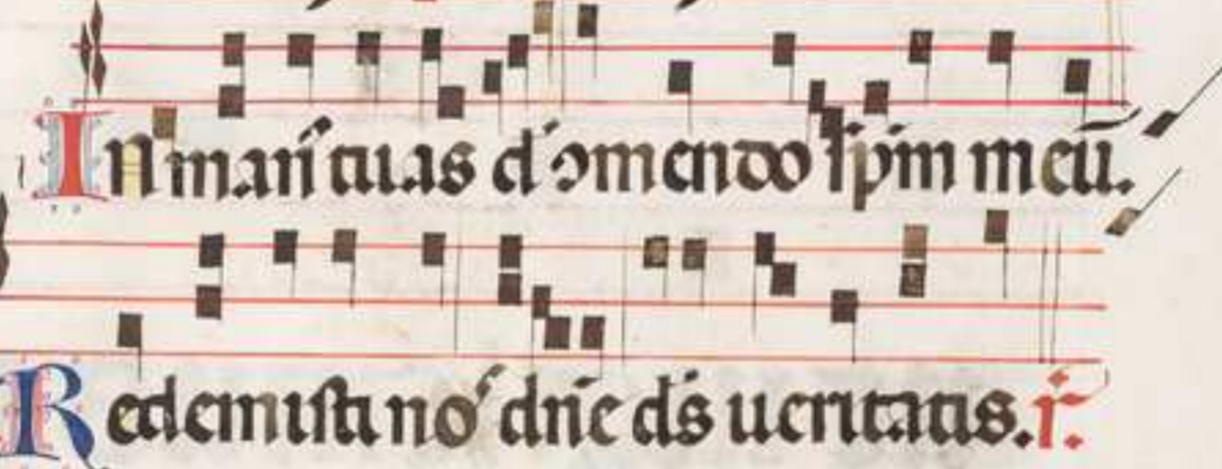 In man̄ tuas d᷒ ↄmendo sp̄m meū.
Redemisti no᷒ dn̄e ds̄ ueritatis. r̄.